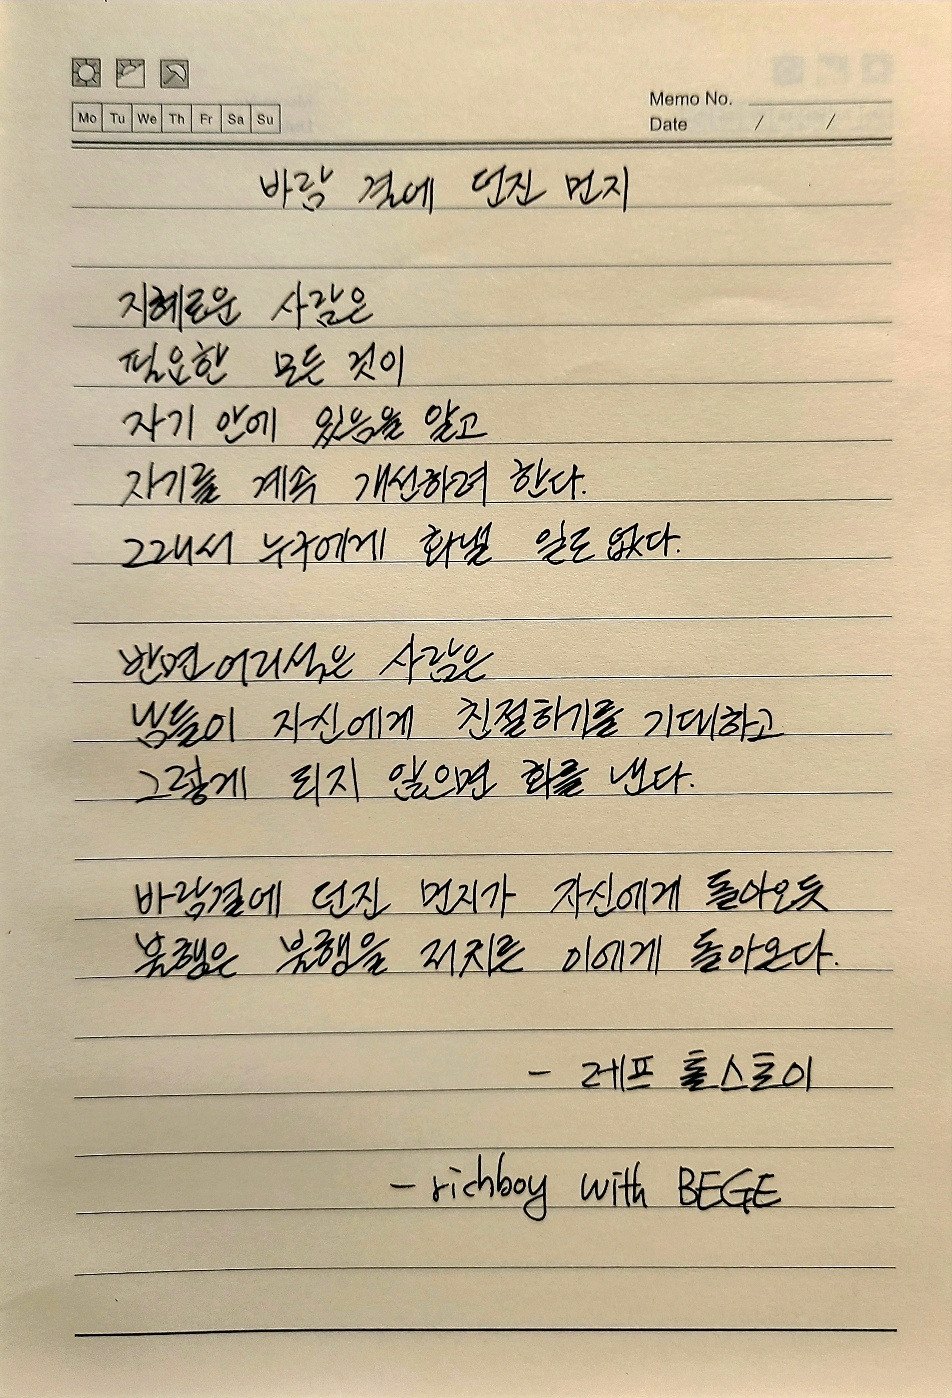 Mo Tu We Th Fr Sa Su
Memo No.
Date / /
바람 결에 던진 먼지
지혜로운 사람은
필요한 모든 것이
자기 안에 있음을 알고
자기를 계속 개선하려 한다.
그래서 누구에게 화낼 일도 없다.
반면 어리석은 사람은
남들이 자신에게 친절하기를 기대하고
그렇게 되지 않으면 화를 낸다.
바람결에 던진 먼지가 자신에게 돌아오듯
불행은 불행을 저지른 이에게 돌아온다.
- 레프 톨스토이
- richboy with BEGE